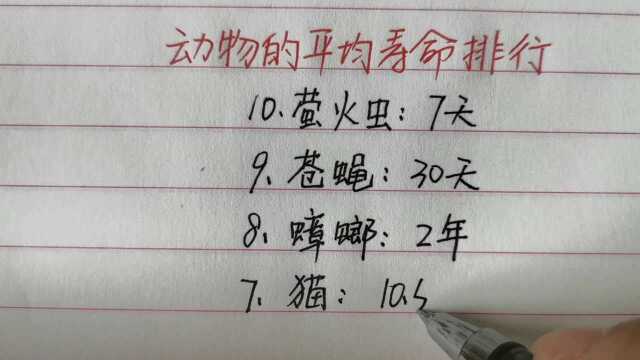 动物的平均寿命排行
10、萤火虫：7天
9、苍蝇：30天
8、蟑螂：2年
7、猫：10.5